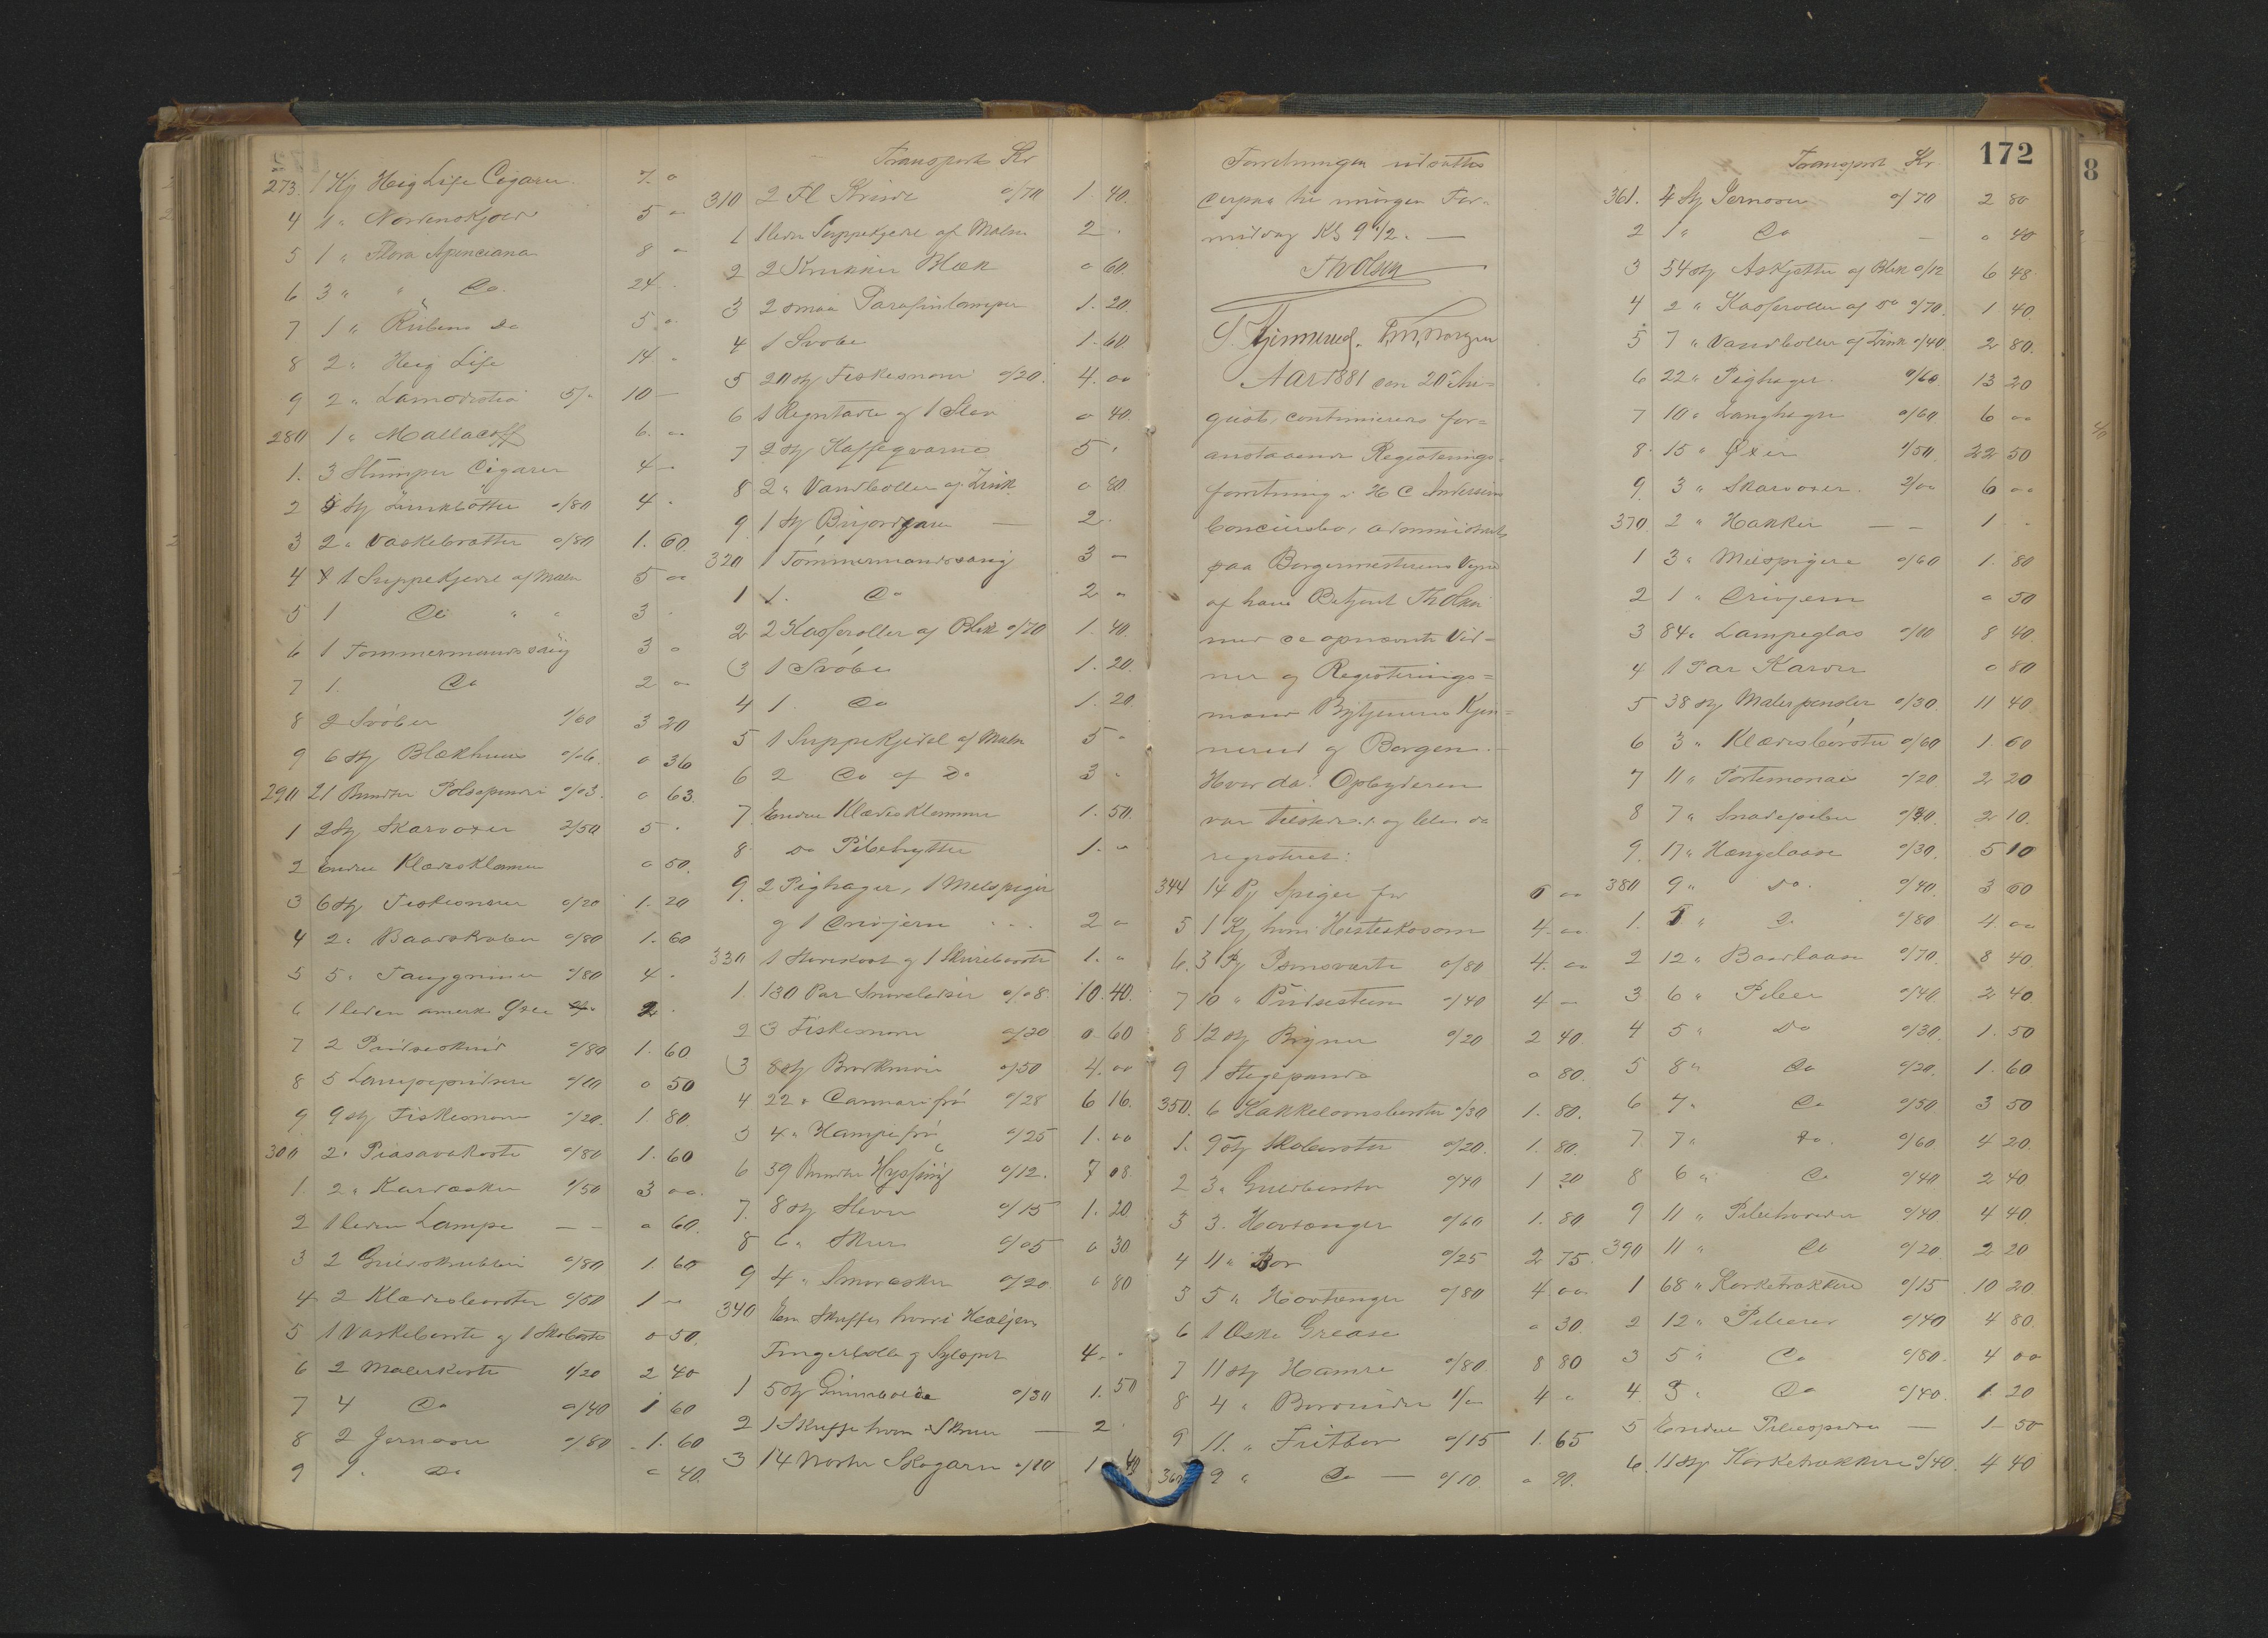 273. 1 Kj Heig Life Cigarer. 7. "
4 1 " Nordenskjold 5 "
5 1 " Flora Apenciana 8 "
6 3 " " Do. 24 "
7 1 " Rubens Do 5. "
8 2 " Heig Life 14 "
9 2 " Lamorestia 5/- 10 -
280 1 " Mallacoff 6. "
1. 3 Stumper Cigarer 4 -
2 5 Stk Zinkbøtter 0/80 4 "
3 2 " Vaskebrætter 0/80 1. 60
4 1 Suppekjedel af Malm 5 "
5 1 Do " " 3 "
6 1 Tømmermandssaug 3 "
7 1. Do 2 "
8 2 Svøber 1/60 3 20
9 6 Stk Blækhuus 0/06. 0 36
290 21 Bundter Pølsepinder 0/03. 0 63.
1 2 Stk Skarvøxer 2/50 5 "
2 Endel Klædesklemmer 0 50.
3 6 Stk Fiskesnører 0/20 1. 20
4 2 " Baadskraber 0/80 1. 60
5 5 " Tauggrimer 0/80 4 "
6 1 liden amerik. 2 "
7 2 Pudseskind 0/80 1. 60
8 5 Lampepudsere 0/10 0 50
9 9 Stk Fiskesnører 0/20. 1. 80
300 2 " Piasavakoste 0/80 1. 60
1. 2 " Kardæsker 1/50 3 00
2 1 liden Lampe - - 0 60
3 2 Gulvskrubber 0/80 1. 60
4 2 Klædesbørster 0/50 1 "
5 1 Vaskebørste og 1 Skobørste 0 50.
6 2 Malerkoste 1/20 2 40
7 4 Do 0/40 1 60
8 2 Jernøser 0/80 1. 60
9 1. Do 0 40.
Transport Kr
310 2 Fl 0/70 1. 40.
1 1 liden Suppekjedel af Malm 2 "
2 2 Krukker Blæk 0 60.
3 2 smaa Parafinlamper 1. 20.
4 1 Svøbe 1. 60.
5 20 Stk Fiskesnører 0/20. 4. 00
6 1 Regntavle og 1 0 40.
7 2 Stk Kaffeqværne 5 "
8 2 " Vandboller af Zink 0 80
9 1 Stk - 2.
320 1 Tømmermandssaug 3 -
1 1. Do 2 "
2 2 Kasseroller af Blik 0/70 1. 40.
3 1 Svøbe 1. 20.
4 1. Do 1. 20.
5 1 Suppekjedel af Malm 5 "
6 2 Do af Do 3 "
7. Endel Klædesklemmer 1. 50.
8 Do Pibehytter 1. "
9. 2 Pighager, 1 Melspiger
og 1 Drivjern 2 "
330 1 Stuekost og 1 Skurebørste 1. "
1. 130 Par Snorelidser 0/08. 10. 40.
2 3 Fiskesnører 0/20 0 60
3 8 Stk Brødknive 0/50 4. 00
4 22 " Cannarifrø 0/28 6 16.
5 4 " Hampefrø 0/25 1. 00
6 59 Bundter Hyssing 0/12. 7 08.
7. 8 Stk 0/15 1. 20
8 6 " 0/05 0 30
9 4 " Smøræsker 0/20 0 80
340 En Skuffe hvori
Fingerbølle og Sylaper 4. "
1 5 Stk 0/30 1. 50
2 1 Skuffe hvori Skruer - 2 "
3 14 Skogarn 0/10 1. 40
Forretningen udsattes
derpaa til imorgen For-
middag Kl 9 1/2. -
Th Olsen
S. Kjennerud. P. M. Borgen
Aar 1881 den 20de Au-
gust, continueres for-
anstaaende Registrerings-
forretning i H C Andersens
Concursbo, administreret
paa Borgermesterens Vegne
af hans Betjent Th Olsen
med de opnævnte Vid-
ner og Registrerings-
mænd Bytjenerne Kjen-
nerud og Borgen. -
Hvor da! Opbyderen
var tilstede. og blev da
registreret:
344 14 Pk Spiger for 6 00
5 1 Kj hvori Hesteskosøm 4. 00
6. 3 Pk 0/80 4. 00
7 10 " Pudsesteen 0/40 4 -
8 12 Stk Bryner 0/20 2 40.
9 1 Stegepande 0 80.
350. 6 Kakkelovnsbørster 0/30 1. 80.
1. 9 Stk Skobørster 0/20. 1. 80.
2 3 " Gulvbørster 0/40 1 20
3 3. Hovtænger 0/60 1. 80
4 11 " Bor 0/25 2 75.
5 5 " Hovtænger 0/80 4 00
6 1 Æske Grease 0 30.
7 11 Stk Hamre 0/80. 8 80
8 4 " Borvinder 1/- 4 "
9 11. " Fritbor 0/15 1. 65
360 9 " Do - 0/10. 0 90.
Transport Kr.
172
8
361. 4 Stk Jernøser 0/70 2 80
2 1 " Do - 0 40
3 54 Stk Askjetter af Blik 0/12 6 48
4 2 " Kasseroller af Do 0/70. 1 40.
5 7 " Vandboller af Zink 0/40. 2 80.
6 22 " Pighager. 0/60 13 20
7 10 " Langhager 0/60 6 00
8 15 " Øxer 1/50 22 50
9. 3 " Skarvøxer. 2/00 6 00
370. 2 " Hakker - - 1 -
1 3 " Melspigere 0/60 1. 80
2 1 " Drivjern 0 50
3 84 " Lampeglas 0/10 8 40.
4 1 Par Karder 0 80
5 38 Stk Malerpensler 0/30. 11 40.
6 3 " Klædesbørster 0/60 1. 60
7 11 " Portemonaier 0/20 2 20
8 7 " Snadepiber 0/30. 2 10.
9. 17 " Hængelaase 0/30. 5 10
380 9 " Do. 0/40. 3 60
1. 5 " Do 0/80 4. 00
2 12 " Baadlaase 0/70. 8 40.
3 6 " Piber 0/40. 2 40.
4 5 " Do 0/30. 1. 50
5 8 " Do 0/20. 1. 60
6 7 " Do 0/50 3 50
7. 7 " Do. 0/60 4 20.
8 6 " Do 0/40 2 40
9 11 " Pibehoveder 0/40 4 40.
390 11 " Do 0/20. 2 20
1 68 " Korketrækkere 0/15 10 20.
2 12 " Piberør 0/40 4 80.
3 5 " Do 0/80. 4 00
4. 3 " Do 0/40. 1. 20
5 Endel - 1. 50
6. 11 Stk Korketrækkere 0/40. 4 40